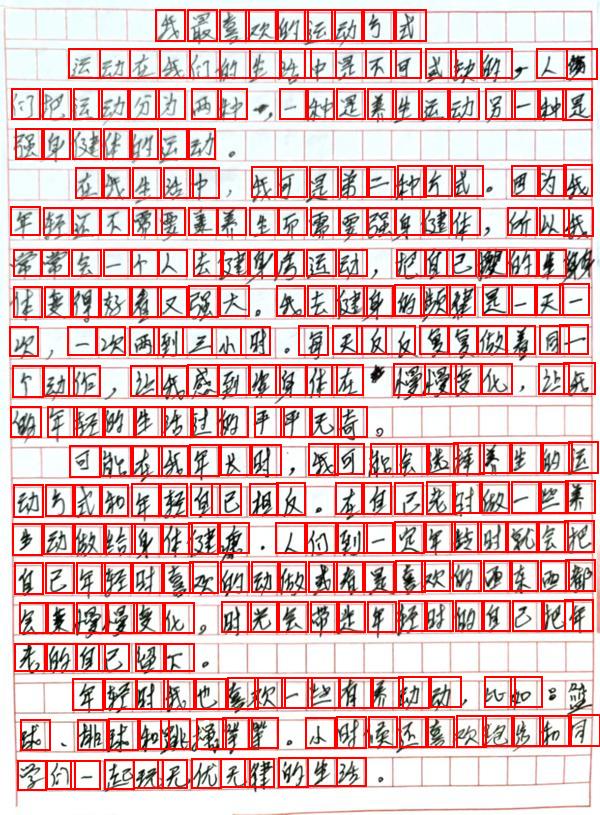 我最喜欢的运动方式
运动在我们的生活中是不可或缺的，人
们把运动分为两种，一种是养生运动另一种是
强身健体的运动。
在我生活中，我可是第二种方式。因为我
年轻还不需要养生而需要强身健体，所以我
常常会一个人去健身房运动，把自己的身
体变得好看又强大。我去健身的频律是一天一
次，一次两到三小时。每天反反复复做着同一
个动作，让我感到浑身体在慢慢变化，让我
的年轻的生活过的平平无奇。
可能在我年大时，我可能会选择养生的运
动方式和年轻自己相反。在自己老时做一些养
动做给身体健康。人们到一定年龄时就会把
自己年轻时喜欢的动做或者是喜欢的西东西都
会变慢慢变化，时光会带走年轻时的自己把年
老的自己留下。
年轻时我也喜欢一些有养动动，比如：篮
球、排球和跳操等等。小时候还喜欢跑步和同
学们一起玩无优无律的生活。